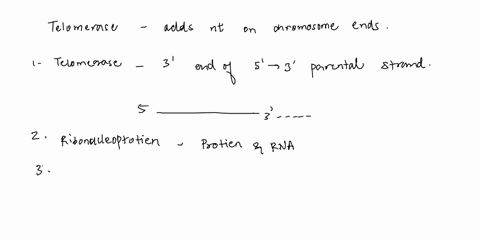 Telomerase - adds nt on chromosome ends.
1- Telomerase - 3' end of 5' → 3' parental strand.
5 3'
2. Ribonucleoprotien - Protien & RNA
3.